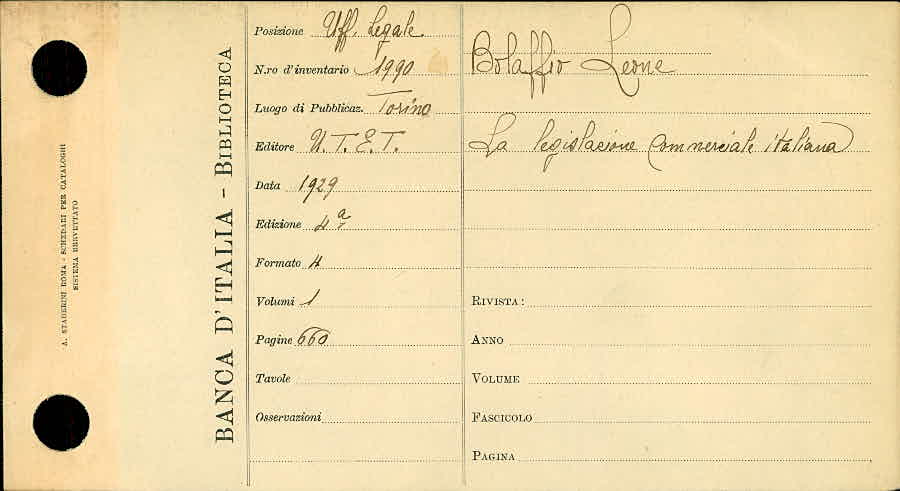 A. STADERINI ROMA - SCHEDARI PER CATALOGHI
SISTEMA BREVETTATO
BANCA D'ITALIA - BIBLIOTECA
Posizione Uff. Legale
N.ro d'inventario 1990
Luogo di Pubblicaz. Torino
Editore U.T.E.T.
Data 1929
Edizione 4a
Formato 4
Volumi 1
Pagine 660
Tavole
Osservazioni
Bolaffio Leone
La legislazione commerciale italiana
RIVISTA:
ANNO
VOLUME
FASCICOLO
PAGINA